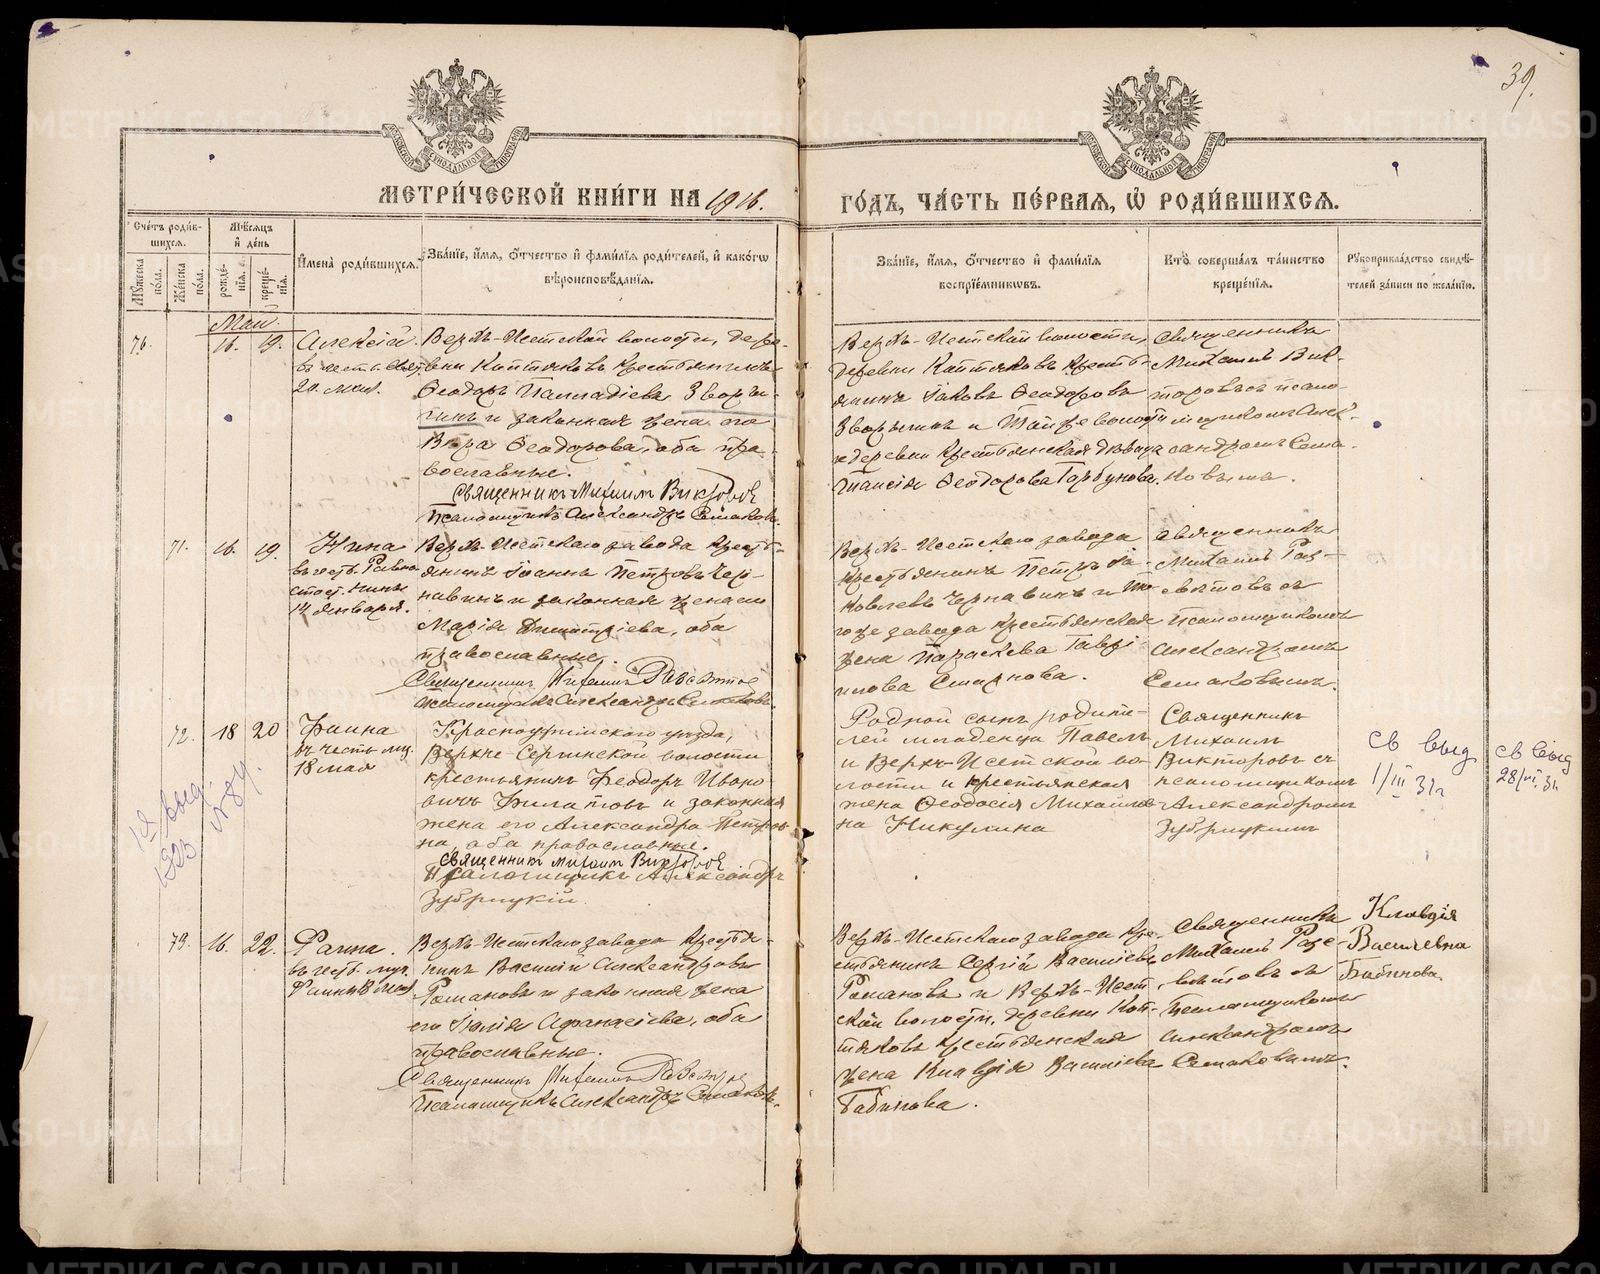 39.
МЕТРИ́ЧЕСКОЙ КНИ́ГИ НА 1916.
ГО́ДЪ, ЧА́СТЬ ПЕ́РВАЯ, Ѡ РОДИ́ВШИХСЯ.
Сче́тъ роди́в-
шихся.
Му́жеска
по́ла.
Же́нска
по́ла.
Мѣ́сяцъ
и де́нь
рожде́-
нія.
креще́-
нія.
Имена̀ роди́вшихся.
Зва́ніе, и́мя, о́тчество и фами́лія роди́телей, и како́гѡ
вѣроисповѣ́данія.
Зва́ніе, и́мя, о́тчество и фами́лія
воспрїе́мниковъ.
Кто̀ соверша́лъ та́инство
креще́нія.
Рукоприкла́дство свидѣ́-
телей за́писи по жела́нію.
Май.
76.
16. 19.
Алексій.
20 мая.
Верхъ-Исетской волости, дере-
вни Коптяковъ крестьянинъ
Ѳеодоръ Палладіевъ Зворы-
гинъ и законная жена его
Вѣра Ѳеодорова, оба пра-
вославные.
Священникъ Михаилъ Викторовъ
Псаломщикъ Александръ Семаковъ.
Верхъ-Исетской волости,
деревни Коптяковъ крестья-
нинъ Іаковъ Ѳеодоровъ
Зворыгинъ и
деревни крестьянская дѣвица
Таисія Ѳеодорова Горбунова.
Священникъ
Михаилъ Вик-
торовъ съ псало-
мщикомъ Алек-
сандромъ Сема-
ковымъ.
71. 16. 19.
Нина
въ честь Равно
апост. Нины
14 января.
Верхъ-Исетскаго завода кресть-
янинъ Іоаннъ Петровъ Чер-
навинъ и законная жена его
Марія Димитріева, оба
православные.
Священникъ Михаилъ
Псаломщикъ Александръ Семаковъ.
Верхъ-Исетскаго завода
крестьянинъ Петръ Іа-
ковлевъ Чернавинъ и то-
го же завода крестьянская
жена Параскева Гаврі-
илова Смирнова.
Священникъ
Михаилъ
съ
псаломщикомъ
Александромъ
Семаковымъ.
72. 18 20
Фаина
въ честь мц.
18 мая
Красноуфимскаго уѣзда,
Верхне-Сергинской волости
крестьянинъ Феодоръ Ивано
вичъ Филатовъ и законная
жена его Александра Петров-
на, оба православные.
Священникъ Михаилъ Викторовъ
Псаломщикъ Александръ
Зубрицкій
Родной сынъ родите-
лей младенца Павелъ
и Верхъ-Исетской во-
лости и крестьянская
жена Ѳеодосія Михайлов-
на Никулина
Священникъ
Михаилъ
Викторовъ съ
псаломщикомъ
Александромъ
Зубрицкимъ
св выд
1/III 31г
св выд
28/VI 31
73. 16. 22.
Фаина.
въ честь муч.
Фаины 18 мая
Верхъ-Исетскаго завода крестья-
нинъ Василій Александровъ
Романовъ и законная жена
его Юлія Афанасіева, оба
православные.
Священникъ Михаилъ
Псаломщикъ Александръ Семаковъ.
Верхъ-Исетскаго завода кре-
стьянинъ Сергій Василіевъ
Романовъ и Верхъ-Исет-
ской волости, деревни Коп-
тяковъ крестьянская
жена Клавдія Василіева
Бабинова.
Священникъ
Михаилъ
съ
псаломщикомъ
Александромъ
Семаковымъ.
Клавдія
Василевна
Бабинова
METRIKI.GASO-URAL.RU